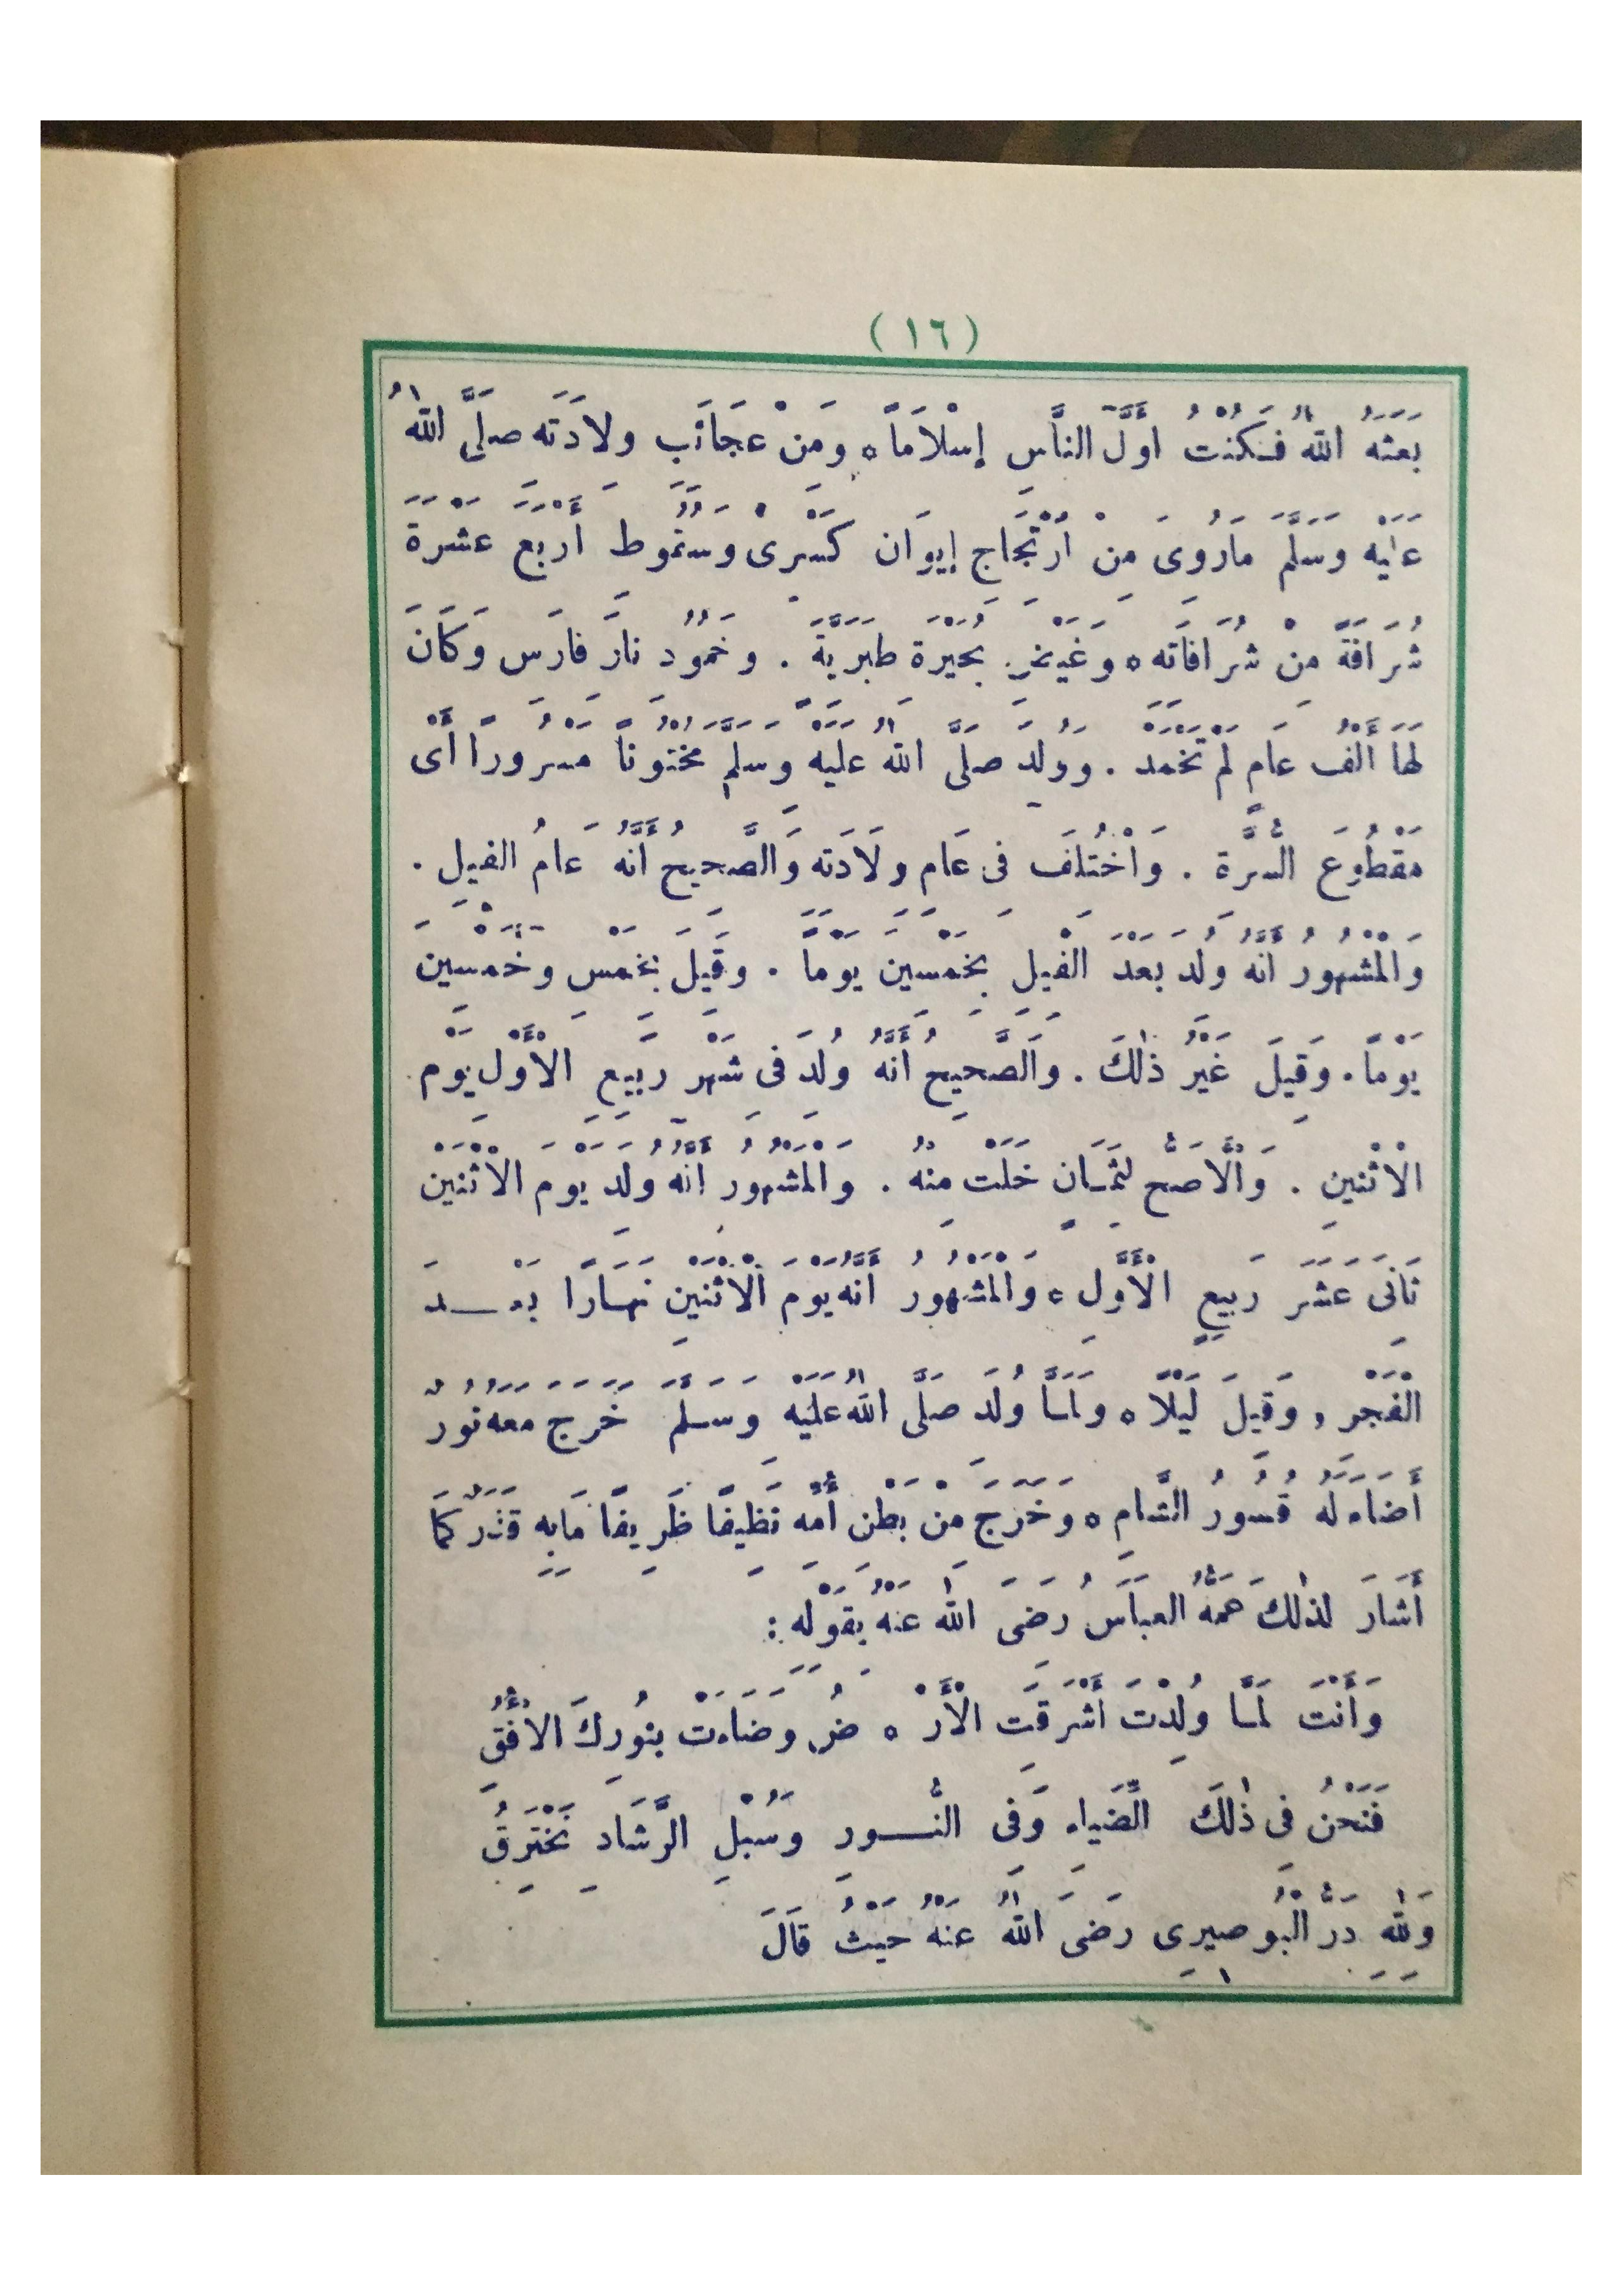 (١٦)
بَعَثَهُ اللّٰهُ فَكُنْتُ أَوَّلَ النَّاسِ إِسْلَامًا ه وَمِنْ عَجَائِبِ وِلَادَتِهِ صَلَّى اللّٰهُ
عَلَيْهِ وَسَلَّمَ مَا رُوِىَ مِنْ اُرْتِجَاجِ إِيوَانِ كِسْرَىْ وَسُقُوطِ أَرْبَعَ عَشْرَةَ
شُرَافَةً مِنْ شُرَافَاتِهِ ه وَغَيْضِ بُحَيْرَةِ طَبَرِيَّةَ . وَخُمُودِ نَارِ فَارِسَ وَكَانَ
لَهَا أَلْفُ عَامٍ لَمْ تَخْمَدْ . وَوُلِدَ صَلَّى اللّٰهُ عَلَيْهِ وَسَلَّمَ مَخْتُونًا مَسْرُورًا أَىْ
مَقْطُوعَ السُّرَّةِ . وَاخْتُلِفَ فِى عَامِ وِلَادَتِهِ وَالصَّحِيحُ أَنَّهُ عَامُ الْفِيلِ .
وَالْمَشْهُورُ أَنَّهُ وُلِدَ بَعْدَ الْفِيلِ بِخَمْسِينَ يَوْمًا . وَقِيلَ بِخَمْسٍ وَخَمْسِينَ
يَوْمًا . وَقِيلَ غَيْرُ ذٰلِكَ . وَالصَّحِيحُ أَنَّهُ وُلِدَ فِى شَهْرِ رَبِيعِ الْأَوَّلِ يَوْمَ
الْاثْنَيْنِ . وَالْأَصَحُّ لِثَمَانٍ خَلَتْ مِنْهُ . وَالْمَشْهُورُ أَنَّهُ وُلِدَ يَوْمَ الْاثْنَيْنِ
ثَانِىَ عَشَرَ رَبِيعٍ الْأَوَّلِ ه وَالْمَشْهُورُ أَنَّهُ يَوْمَ الْاثْنَيْنِ نَهَارًا بَعْـــدَ
الْفَجْرِ , وَقِيلَ لَيْلًا ه وَلَمَّا وُلِدَ صَلَّى اللّٰهُ عَلَيْهِ وَسَلَّمَ خَرَجَ مَعَهُ نُورٌ
أَضَاءَ لَهُ قُسُورُ الشَّامِ ه وَخَرَجَ مِنْ بَطْنِ أُمِّهِ نَظِيفًا ظَرِيفًا مَا بِهِ قَذَرٌ كَمَا
أَشَارَ لِذٰلِكَ عَمُّهُ الْعَبَاسُ رَضِىَ اللّٰهُ عَنْهُ بِقَوْلِهِ :
وَأَنْتَ لَمَّا وُلِدْتَ أَشْرَقَتِ الْأَرْ ه ضُ وَضَاءَتْ بِنُورِكَ الْأُفُقُ
فَنَحْنُ فِى ذٰلِكَ الضِّيَاءِ وَفِى النُّـــورِ وَسُبْلِ الرَّشَادِ نَخْتَرِقُ
وَلِلّٰهِ دَرُّ الْبُوصِيرِى رَضِىَ اللّٰهُ عَنْهُ حَيْثُ قَالَ